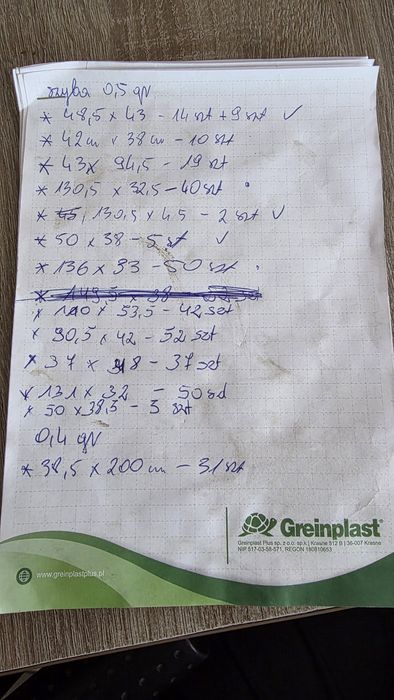 szyba 0,5 gr
* 48,5 x 43 - 14 szt + 9 szt ✓
* 42 cm x 38 cm - 10 szt
* 43 x 94,5 - 19 szt
* 130,5 x 32,5 - 40 szt
* 130,5 x 45 - 2 szt ✓
* 50 x 38 - 5 szt ✓
* 136 x 33 - 50 szt
x 53,5 - 42 szt
x 90,5 x 42 - 52 szt
* 37 x 48 - 37 szt
* 131 x 32 - 50 szt
x 50 x 38,5 - 3 szt
0,4 gr
* 38,5 x 200 cm - 31 szt
Greinplast
Greinplast Plus sp. z o.o. sp.k | Krasne 512 B | 36-007 Krasne
NIP 517-03-58-571, REGON 180810653
www.greinplastplus.pl